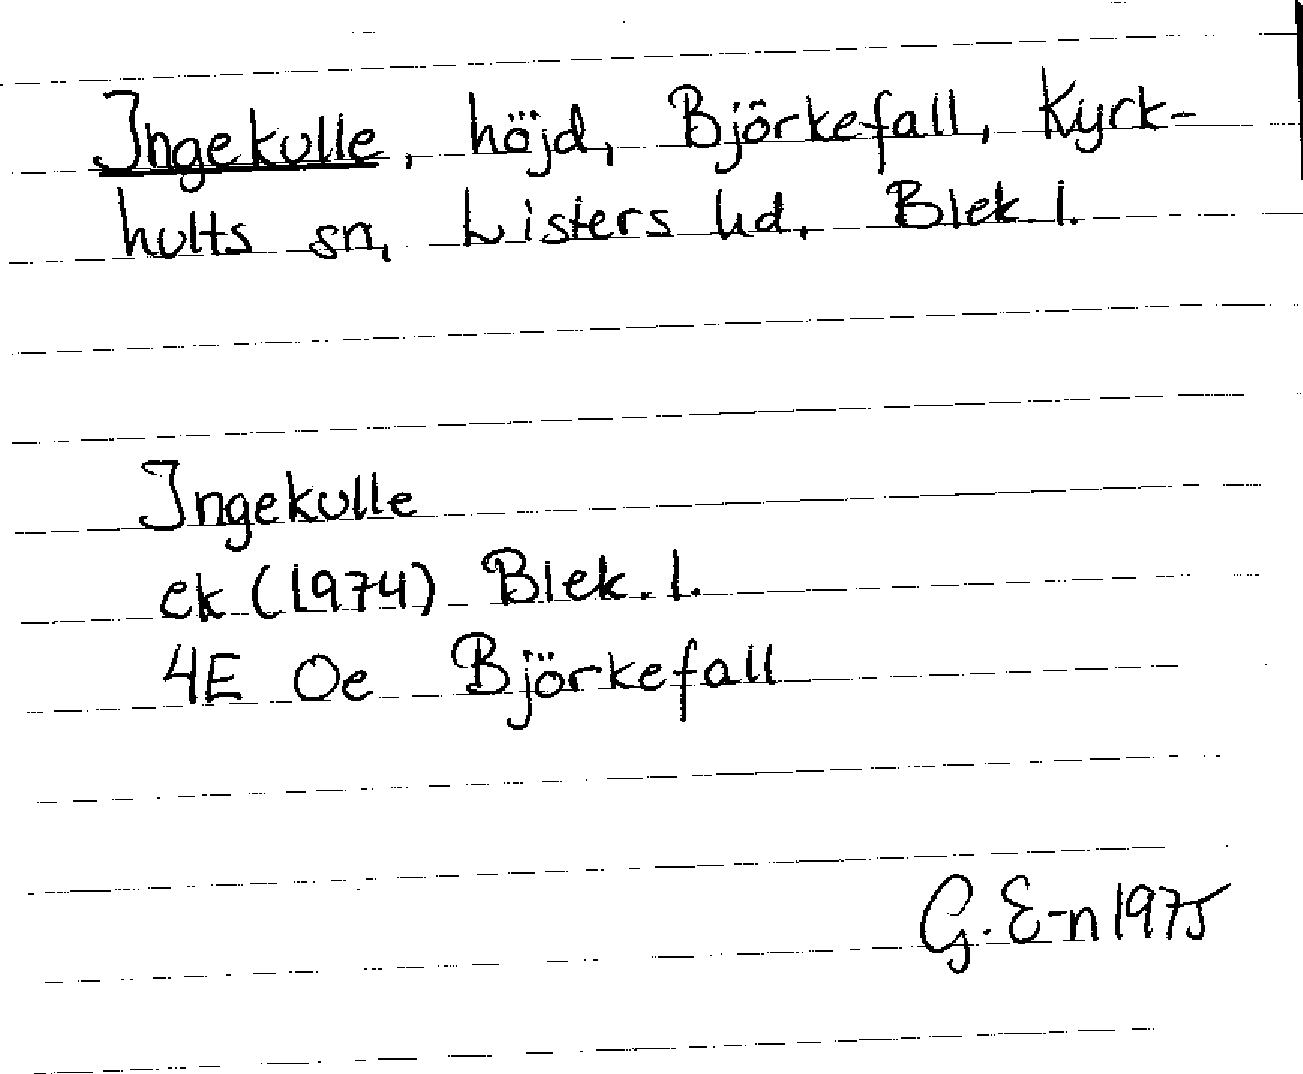 Ingekulle, höjd, Björkefall, Kyrk-
hults sn, Listers hd, Blek. l.
Ingekulle
ek (1974) Blek. l.
4E Oe Björkefall
G. E-n 1975